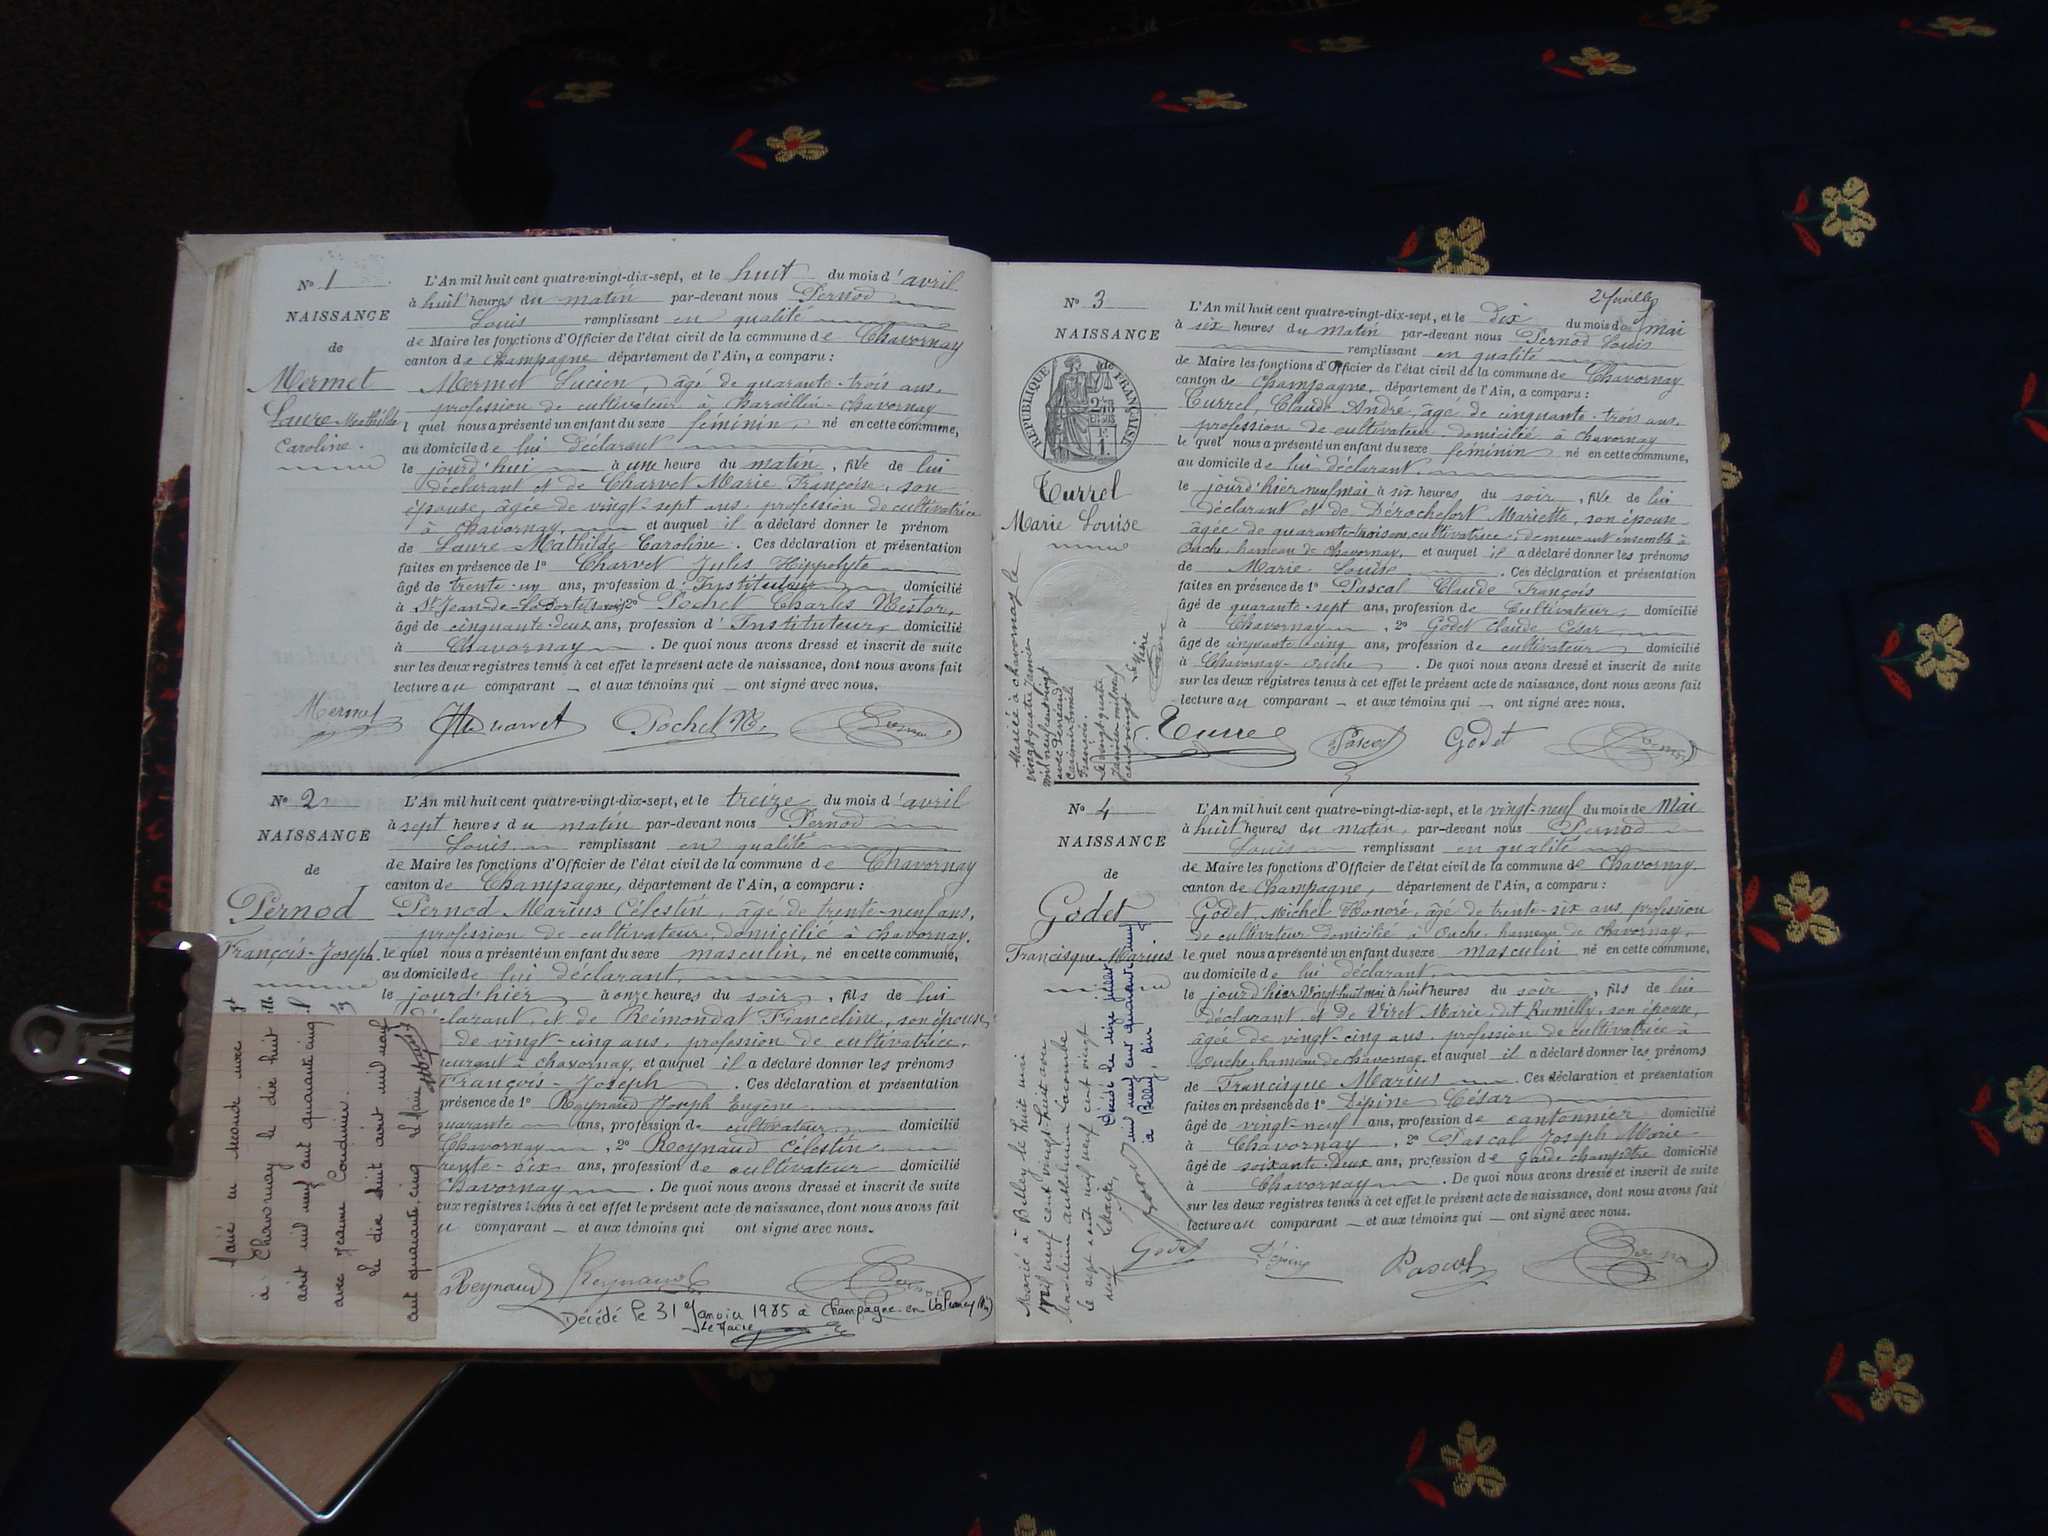 N° 1
NAISSANCE
de
Mermet
Laure Mathilde
Caroline.
L'An mil huit cent quatre-vingt-dix-sept, et le huit du mois d'avril
à huit heures du matin par-devant nous Pernod
Louis remplissant en qualité
de Maire les fonctions d'Officier de l'état civil de la commune de Chavornay
canton de Champagne département de l'Ain, a comparu :
Mermet Lucien, âgé de quarante-trois ans,
profession de cultivateur à Charaillin-Chavornay
l quel nous a présenté un enfant du sexe féminin, né en cette commune,
au domicile de lui déclarant
le jourd'hui à une heure du matin, fille de lui
déclarant et de Charvet Marie Françoise, son
épouse, âgée de vingt-sept ans, profession de cultivatrice
à Chavornay, et auquel il a déclaré donner le prénom
de Laure Mathilde Caroline. Ces déclaration et présentation
faites en présence de 1° Charvet Jules Hippolyte
âgé de trente-un ans, profession d'Instituteur domicilié
à St Jean-de-La Porte 2° Pochet Charles Nestor,
âgé de cinquante-deux ans, profession d'Instituteur, domicilié
à Chavornay. De quoi nous avons dressé et inscrit de suite
sur les deux registres tenus à cet effet le présent acte de naissance, dont nous avons fait
lecture au comparant et aux témoins qui ont signé avec nous.
Mermet Charvet Pochet N. Pernod
N° 2
NAISSANCE
de
Pernod
François-Joseph.
L'An mil huit cent quatre-vingt-dix-sept, et le treize du mois d'avril
à sept heures du matin par-devant nous Pernod
Louis remplissant en qualité
de Maire les fonctions d'Officier de l'état civil de la commune de Chavornay
canton de Champagne, département de l'Ain, a comparu :
Pernod Marius Célestin, âgé de trente-neuf ans,
profession de cultivateur, domicilié à Chavornay.
le quel nous a présenté un enfant du sexe masculin, né en cette commune,
au domicile de lui déclarant,
le jourd'hier à onze heures du soir, fils de lui
déclarant, et de Rémondat Franceline, son épouse
de vingt-cinq ans, profession de cultivatrice,
eurant à Chavornay, et auquel il a déclaré donner les prénoms
François-Joseph. Ces déclaration et présentation
présence de 1° Reynaud Joseph Eugène
quarante ans, profession de cultivateur domicilié
Chavornay, 2° Reynaud Célestin
trente-six ans, profession de cultivateur domicilié
Chavornay. De quoi nous avons dressé et inscrit de suite
eux registres tenus à cet effet le présent acte de naissance, dont nous avons fait
comparant et aux témoins qui ont signé avec nous.
Reynaud Reynaud C Pernod
Décédé le 31 Janvier 1985 à Champagne-en-Valromey (Ain)
Le Maire
Marié en seconde noce
à Chavornay le dix huit
août mil neuf cent quarante cinq
avec Jeanne
le dix huit août mil neuf
cent quarante cinq. Le Maire
2e feuillet
N° 3
NAISSANCE
RÉPUBLIQUE FRANÇAISE
Turrel
Marie Louise
L'An mil huit cent quatre-vingt-dix-sept, et le dix du mois de mai
à six heures du matin par-devant nous Pernod Louis
remplissant en qualité
de Maire les fonctions d'Officier de l'état civil de la commune de Chavornay
canton de Champagne, département de l'Ain, a comparu :
Turrel, Claude André, âgé de cinquante-trois ans,
profession de cultivateur domicilié à Chavornay
le quel nous a présenté un enfant du sexe féminin né en cette commune,
au domicile de lui déclarant.
le jourd'hier neuf mai à six heures du soir, fille de lui
déclarant et de Dérochefort Mariette, son épouse
âgée de quarante-trois ans, cultivatrice, demeurant ensemble à
Ouche, hameau de Chavornay, et auquel il a déclaré donner les prénoms
de Marie Louise. Ces déclaration et présentation
faites en présence de 1° Pascal Claude François
âgé de quarante-sept ans, profession de Cultivateur, domicilié
à Chavornay, 2° Godet Claude César
âgé de cinquante-cinq ans, profession de cultivateur domicilié
à Chavornay-Ouche. De quoi nous avons dressé et inscrit de suite
sur les deux registres tenus à cet effet le présent acte de naissance, dont nous avons fait
lecture au comparant et aux témoins qui ont signé avec nous.
Turrel Pascal Godet Pernod
Mariée à Chavornay le
vingt quatre janvier
mil neuf cent vingt
avec
Casimir
François.
Le vingt quatre
Janvier mil neuf
cent vingt
Le Maire
N° 4
NAISSANCE
de
Godet
Francisque Marius
L'An mil huit cent quatre-vingt-dix-sept, et le vingt-neuf du mois de Mai
à huit heures du matin, par-devant nous Pernod
Louis remplissant en qualité
de Maire les fonctions d'Officier de l'état civil de la commune de Chavornay.
canton de Champagne, département de l'Ain, a comparu :
Godet, Michel Honoré, âgé de trente-six ans profession
de cultivateur domicilié à Ouche, hameau de Chavornay,
le quel nous a présenté un enfant du sexe masculin né en cette commune,
au domicile de lui déclarant,
le jourd'hier vingt-huit mai à huit heures du soir, fils de lui
déclarant et de Viret Marie dit Rumilly, son épouse,
âgée de vingt-cinq ans, profession de cultivatrice à
Ouche, hameau de Chavornay, et auquel il a déclaré donner les prénoms
de Francisque Marius. Ces déclaration et présentation
faites en présence de 1° Dépine César
âgé de vingt-neuf ans, profession de cantonnier domicilié
à Chavornay, 2° Pascal Joseph Marie
âgé de soixante-deux ans, profession de garde champêtre domicilié
à Chavornay. De quoi nous avons dressé et inscrit de suite
sur les deux registres tenus à cet effet le présent acte de naissance, dont nous avons fait
lecture au comparant et aux témoins qui ont signé avec nous.
Godet Dépine Pascal Pernod
Marié à Belley le huit mai
mil neuf cent vingt-huit avec
Lacombe
le sept août mil neuf cent vingt
Décédé le seize juillet
mil neuf cent quarante neuf
à Belley, Ain